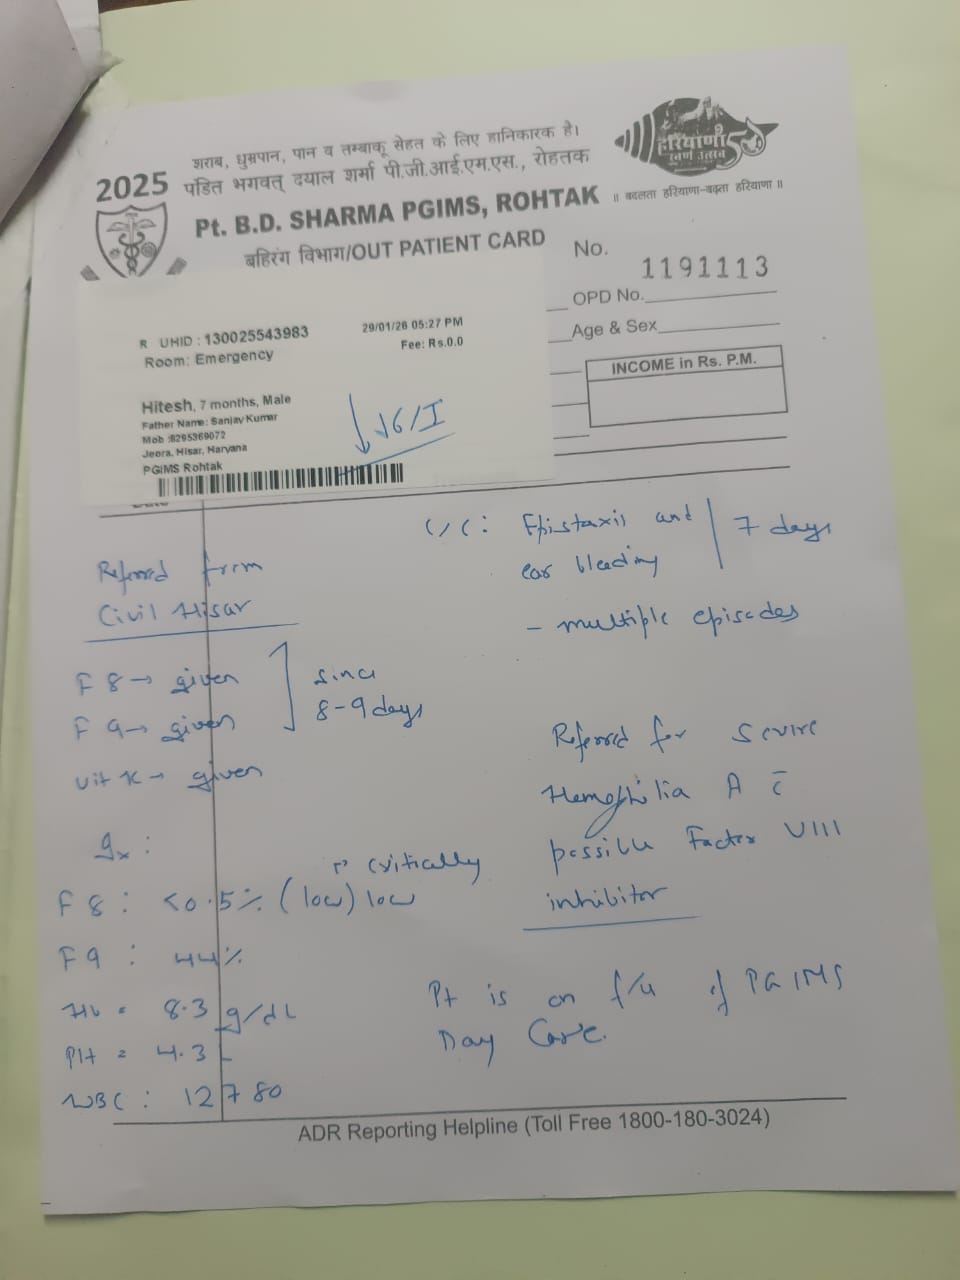 शराब, धुम्रपान, पान व तम्बाकू सेहत के लिए हानिकारक है।
2025 पंडित भगवत् दयाल शर्मा पी.जी.आई.एम.एस., रोहतक
Pt. B.D. SHARMA PGIMS, ROHTAK
बहिरंग विभाग/OUT PATIENT CARD
हरियाणा
॥ बदलता हरियाणा-बढ़ता हरियाणा ॥
No. 1191113
OPD No.
Age & Sex
INCOME in Rs. P.M.
R UHID : 130025543983
Room: Emergency
29/01/26 05:27 PM
Fee: Rs.0.0
Hitesh, 7 months, Male
Father Name: Sanjay Kumar
Mob :8295369072
Jeora, Hisar, Haryana
PGIMS Rohtak
C/C: Epistaxis and
ear bleeding
7 days
- multiple episodes
Referred from
Civil Hisar
F 8 → given
F 9 → given
since
8-9 days
Vit K → given
Referred for Severe
Hemophilia A c̄
possible Factor VIII
inhibitor
Ix :
F 8 : <0.5% (low) critically low
F 9 : 44%
Hb = 8.3 g/dL
Plt = 4.3 L
WBC : 12780
Pt is on f/u of PGIMS
Day Care.
ADR Reporting Helpline (Toll Free 1800-180-3024)